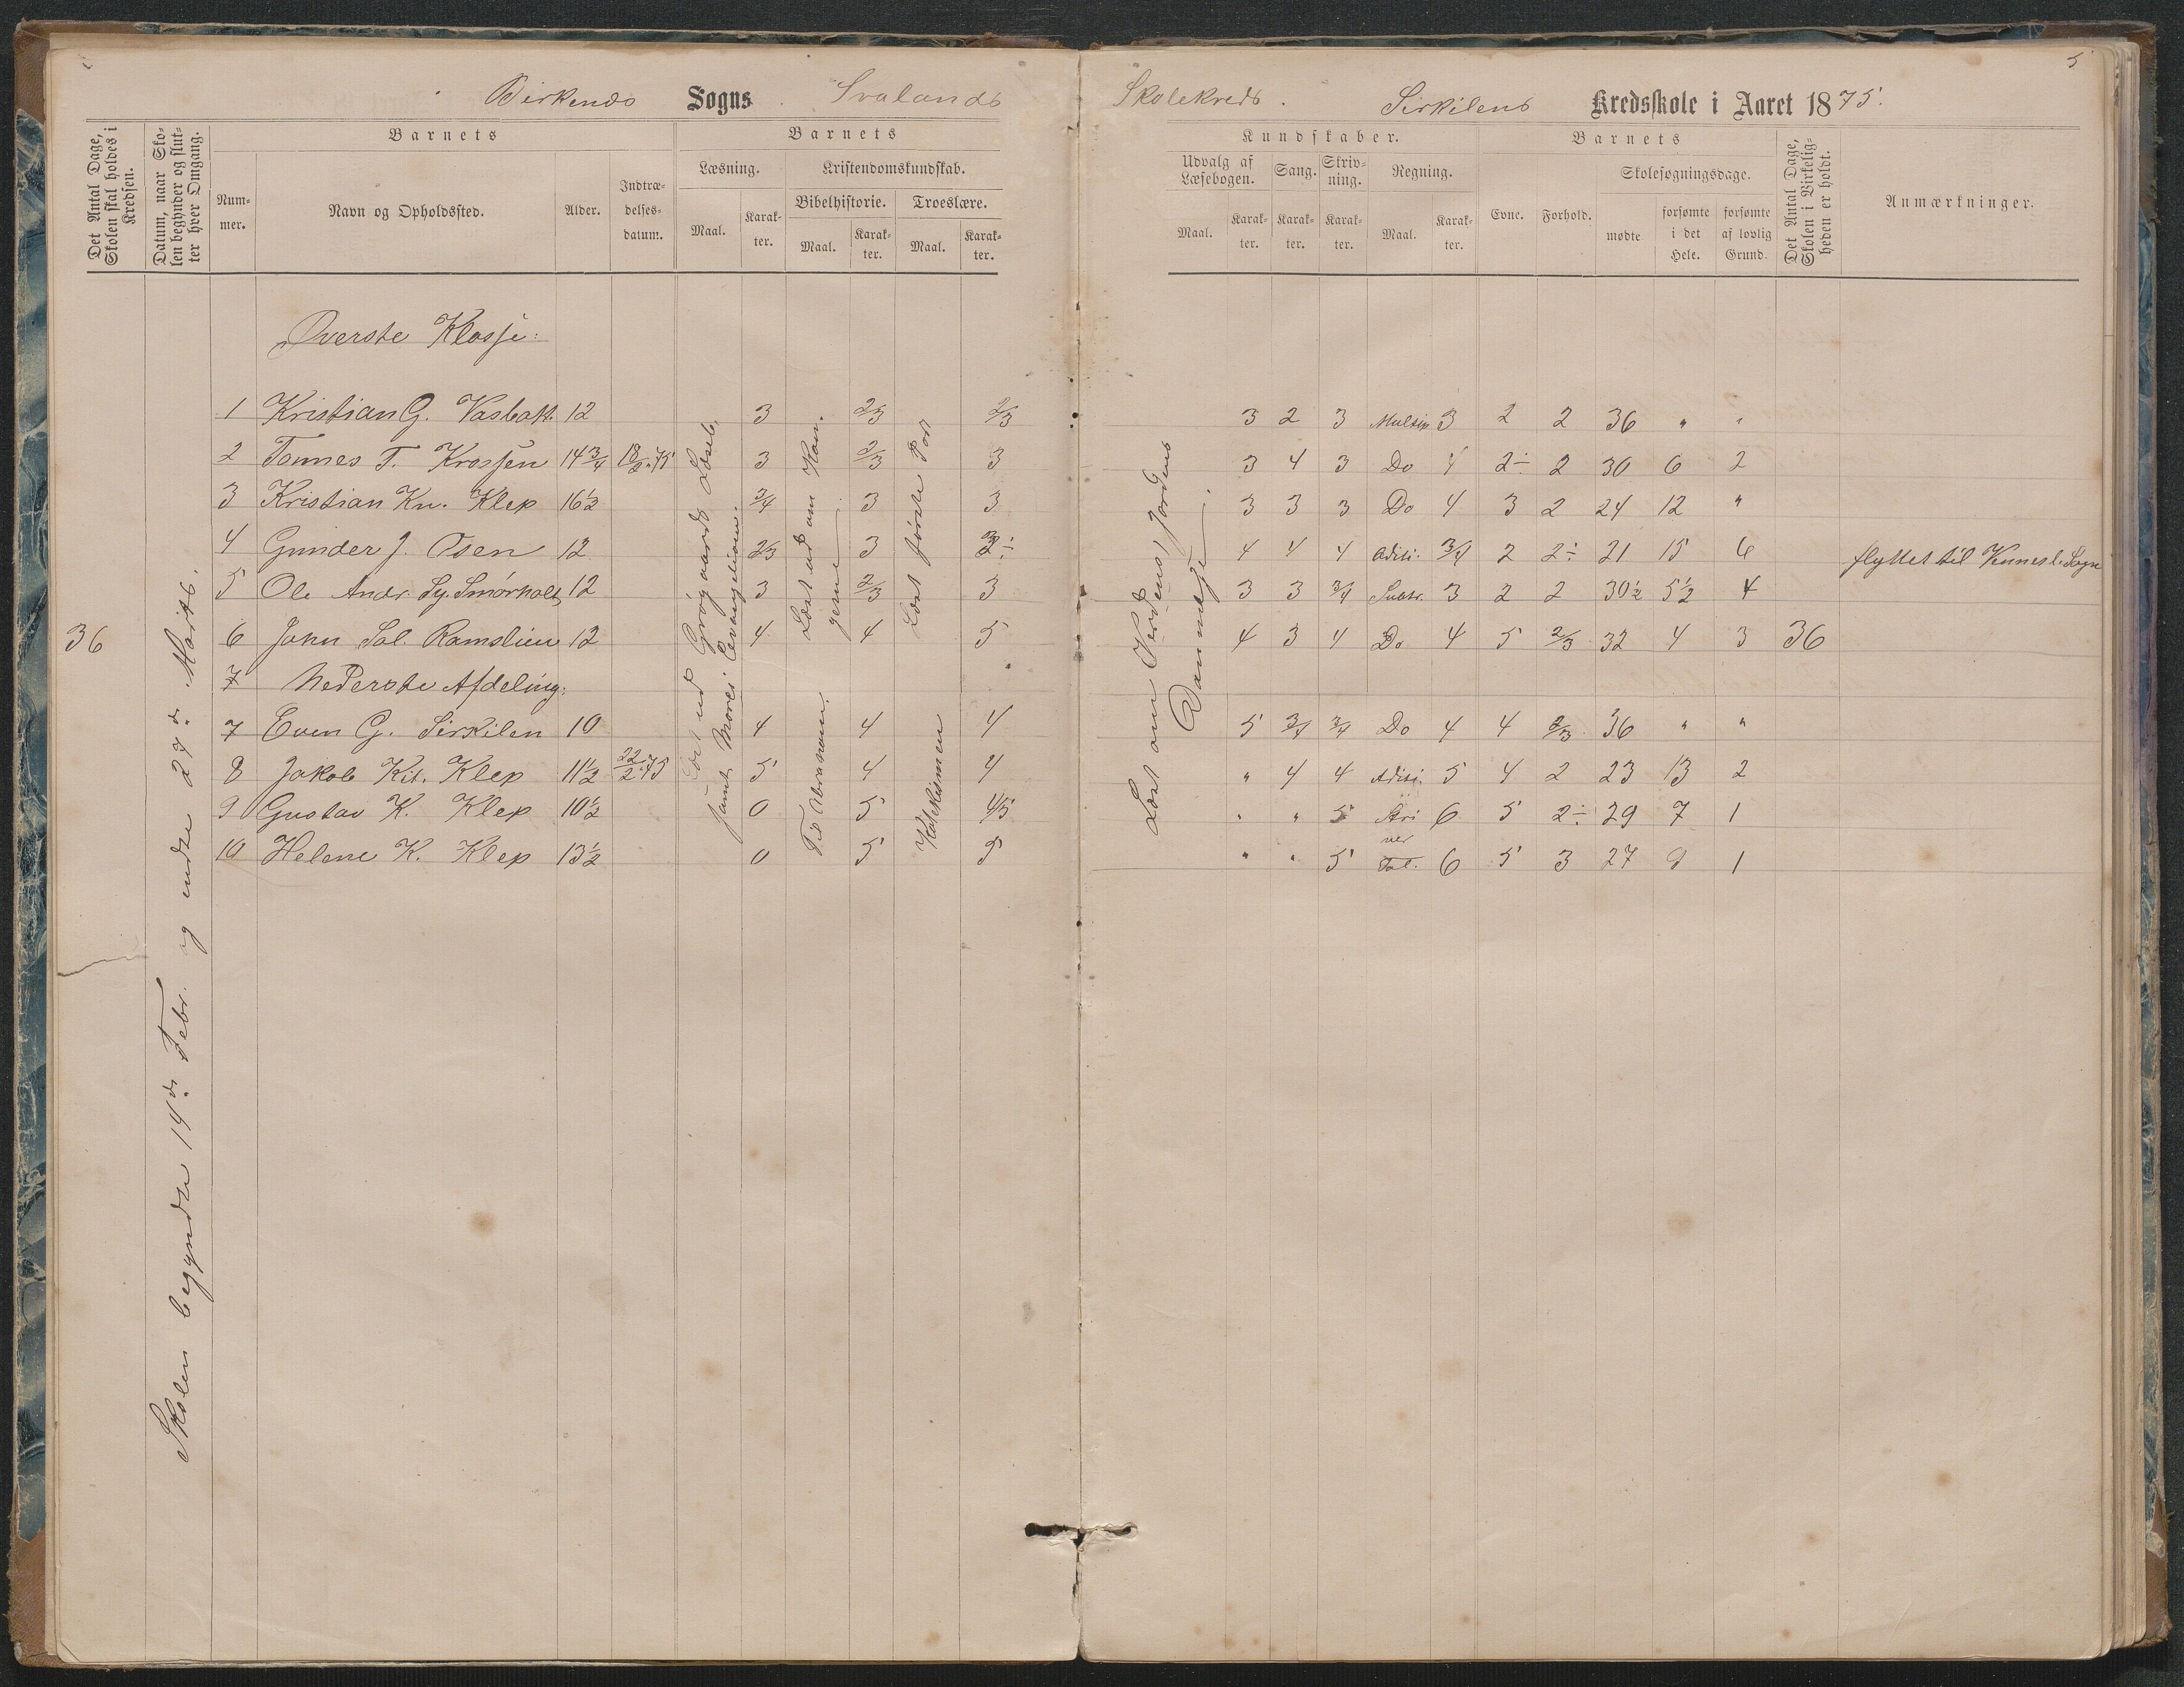 Birkenes Sogns Svalands Skolekreds. Sirkilens Kredsskole i Aaret 1875. 5
Det Antal Dage, Skolen skal holdes i Kredsen.
Datum, naar Skolen begynder og slutter hver Omgang.
Barnets
Nummer.
Navn og Opholdssted.
Alder.
Indtrædelsesdatum.
Barnets
Læsning.
Maal.
Karakter.
Kristendomskundskab.
Bibelhistorie.
Maal.
Karakter.
Troeslære.
Maal.
Karakter.
Kundskaber.
Udvalg af Læsebogen.
Maal.
Karakter.
Sang.
Karakter.
Skrivning.
Karakter.
Regning.
Maal.
Karakter.
Barnets
Evne.
Forhold.
Skolesøgningsdage.
mødte
forsømte i det Hele.
forsømte af lovlig Grund.
Det Antal Dage, Skolen i Virkeligheden er holdt.
Anmærkninger.
36
Skolen begyndte 14de Febr. og endte 27de Marts.
Øverste Klasse:
1 Kristian G. 12 3 2/3 2/3 3 2 3 Multip 3 2 2 36 " "
2 Tønnes T. Krossen 14 3/4 18/2 75 3 2/3 3 3 4 3 Do 4 2÷ 2 30 6 2
3 Kristian Kn. Klep 16 1/2 3/4 3 3 3 3 3 Do 4 3 2 24 12 "
4 Gunder J. Osen 12 2/3 3 2÷ 4 4 4 Aditi. 3/4 2 2÷ 21 15 6 flyttet til Sogn
5 Ole Andr. Sy. Smørholt 12 3 2/3 3 3 3 3/4 Subtr. 3 2 2 30 1/2 5 1/2 4
6 John Sal. Ramslien 12 4 4 5 4 3 4 Do 4 5 2/3 32 4 3 36
7 Nederste Afdeling:
7 Even G. Sirkilen 10 4 4 4 5 3/4 3/4 Do 4 4 2/3 36 " "
8 Jakob Kit. Klep 11 1/2 22/2 75 5 4 4 " 4 4 Aditi. 5 4 2 23 13 2
9 Gustav K. Klep 10 1/2 0 5 4/5 " " 5 Skri 6 5 2÷ 29 7 1
ver
10 Helene K. Klep 13 1/2 0 5 5 " " 5 Tal. 6 5 3 27 9 1
Læst ud Læseb.
samt Evangelium.
Læst ud om Kon-
gerne
Til Abraham.
Læst første Part
Katekismen
Læst om Verdens, Jordens
Danmelse.